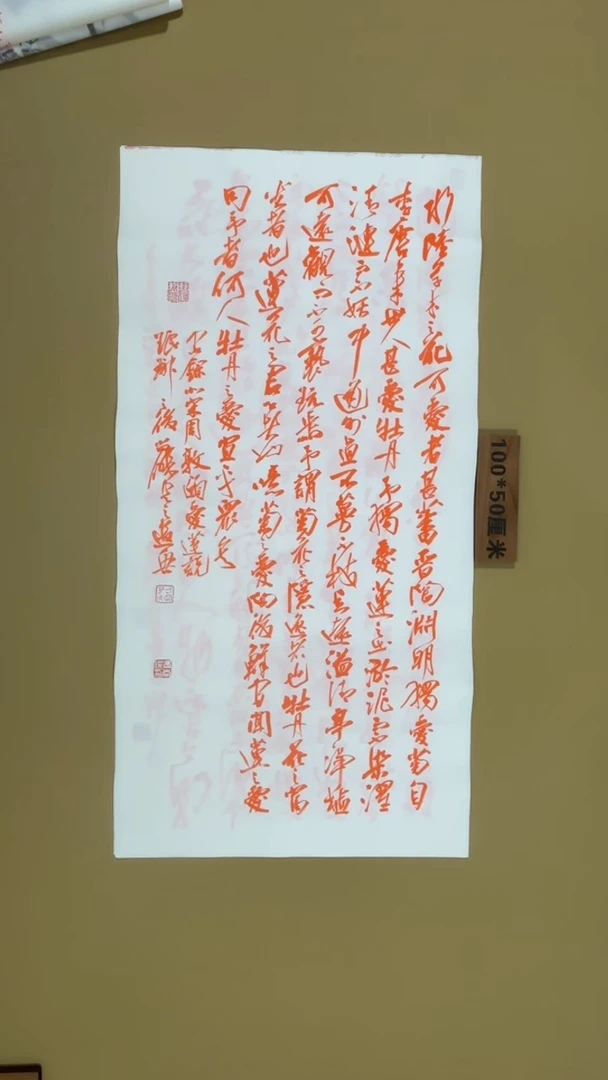 水陸草木之花可愛者甚蕃晋陶淵明獨愛菊自
李唐来世人甚愛牡丹予獨愛蓮之出淤泥而不染濯
清漣而不妖中通外直不蔓不枝香遠溢清亭亭淨植
可遠觀而不可褻玩焉予謂菊花之隱逸者也牡丹花之富
貴者也蓮花之君子者也噫菊之愛陶後鮮有聞蓮之愛
同予者何人牡丹之愛宜乎衆矣
録宋周敦頤愛蓮說
100*50厘米